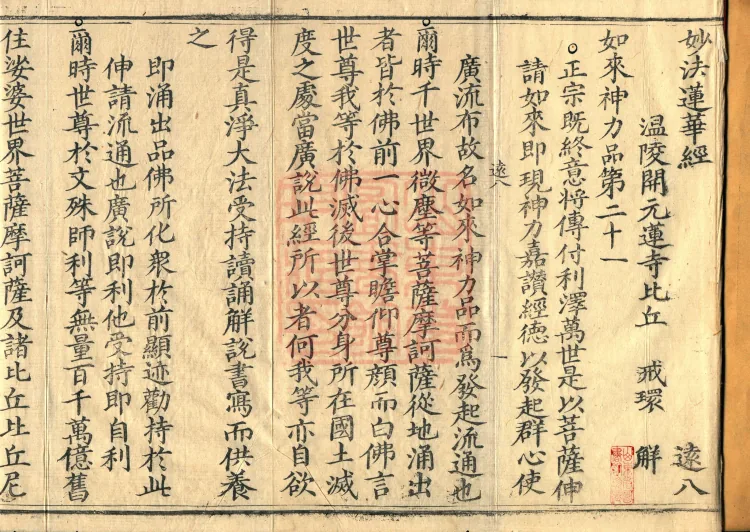 妙法蓮華經 遠八
温陵開元蓮寺比丘 戒環 解
如來神力品第二十一
○正宗既終意將傳付利澤萬世是以菩薩伸
請如來即現神力嘉讚經德以發起群心使
遠八 一
廣流布故名如來神力品而爲發起流通也
○爾時千世界微塵等菩薩摩訶薩從地涌出
者皆於佛前一心合掌瞻仰尊顔而白佛言
世尊我等於佛滅後世尊分身所在國土滅
度之處當廣說此經所以者何我等亦自欲
得是真淨大法受持讀誦解說書寫而供養
之
即涌出品佛所化衆於前顯迹勸持於此
伸請流通也廣說即利他受持即自利
○爾時世尊於文殊師利等無量百千萬億舊
住娑婆世界菩薩摩訶薩及諸比丘比丘尼